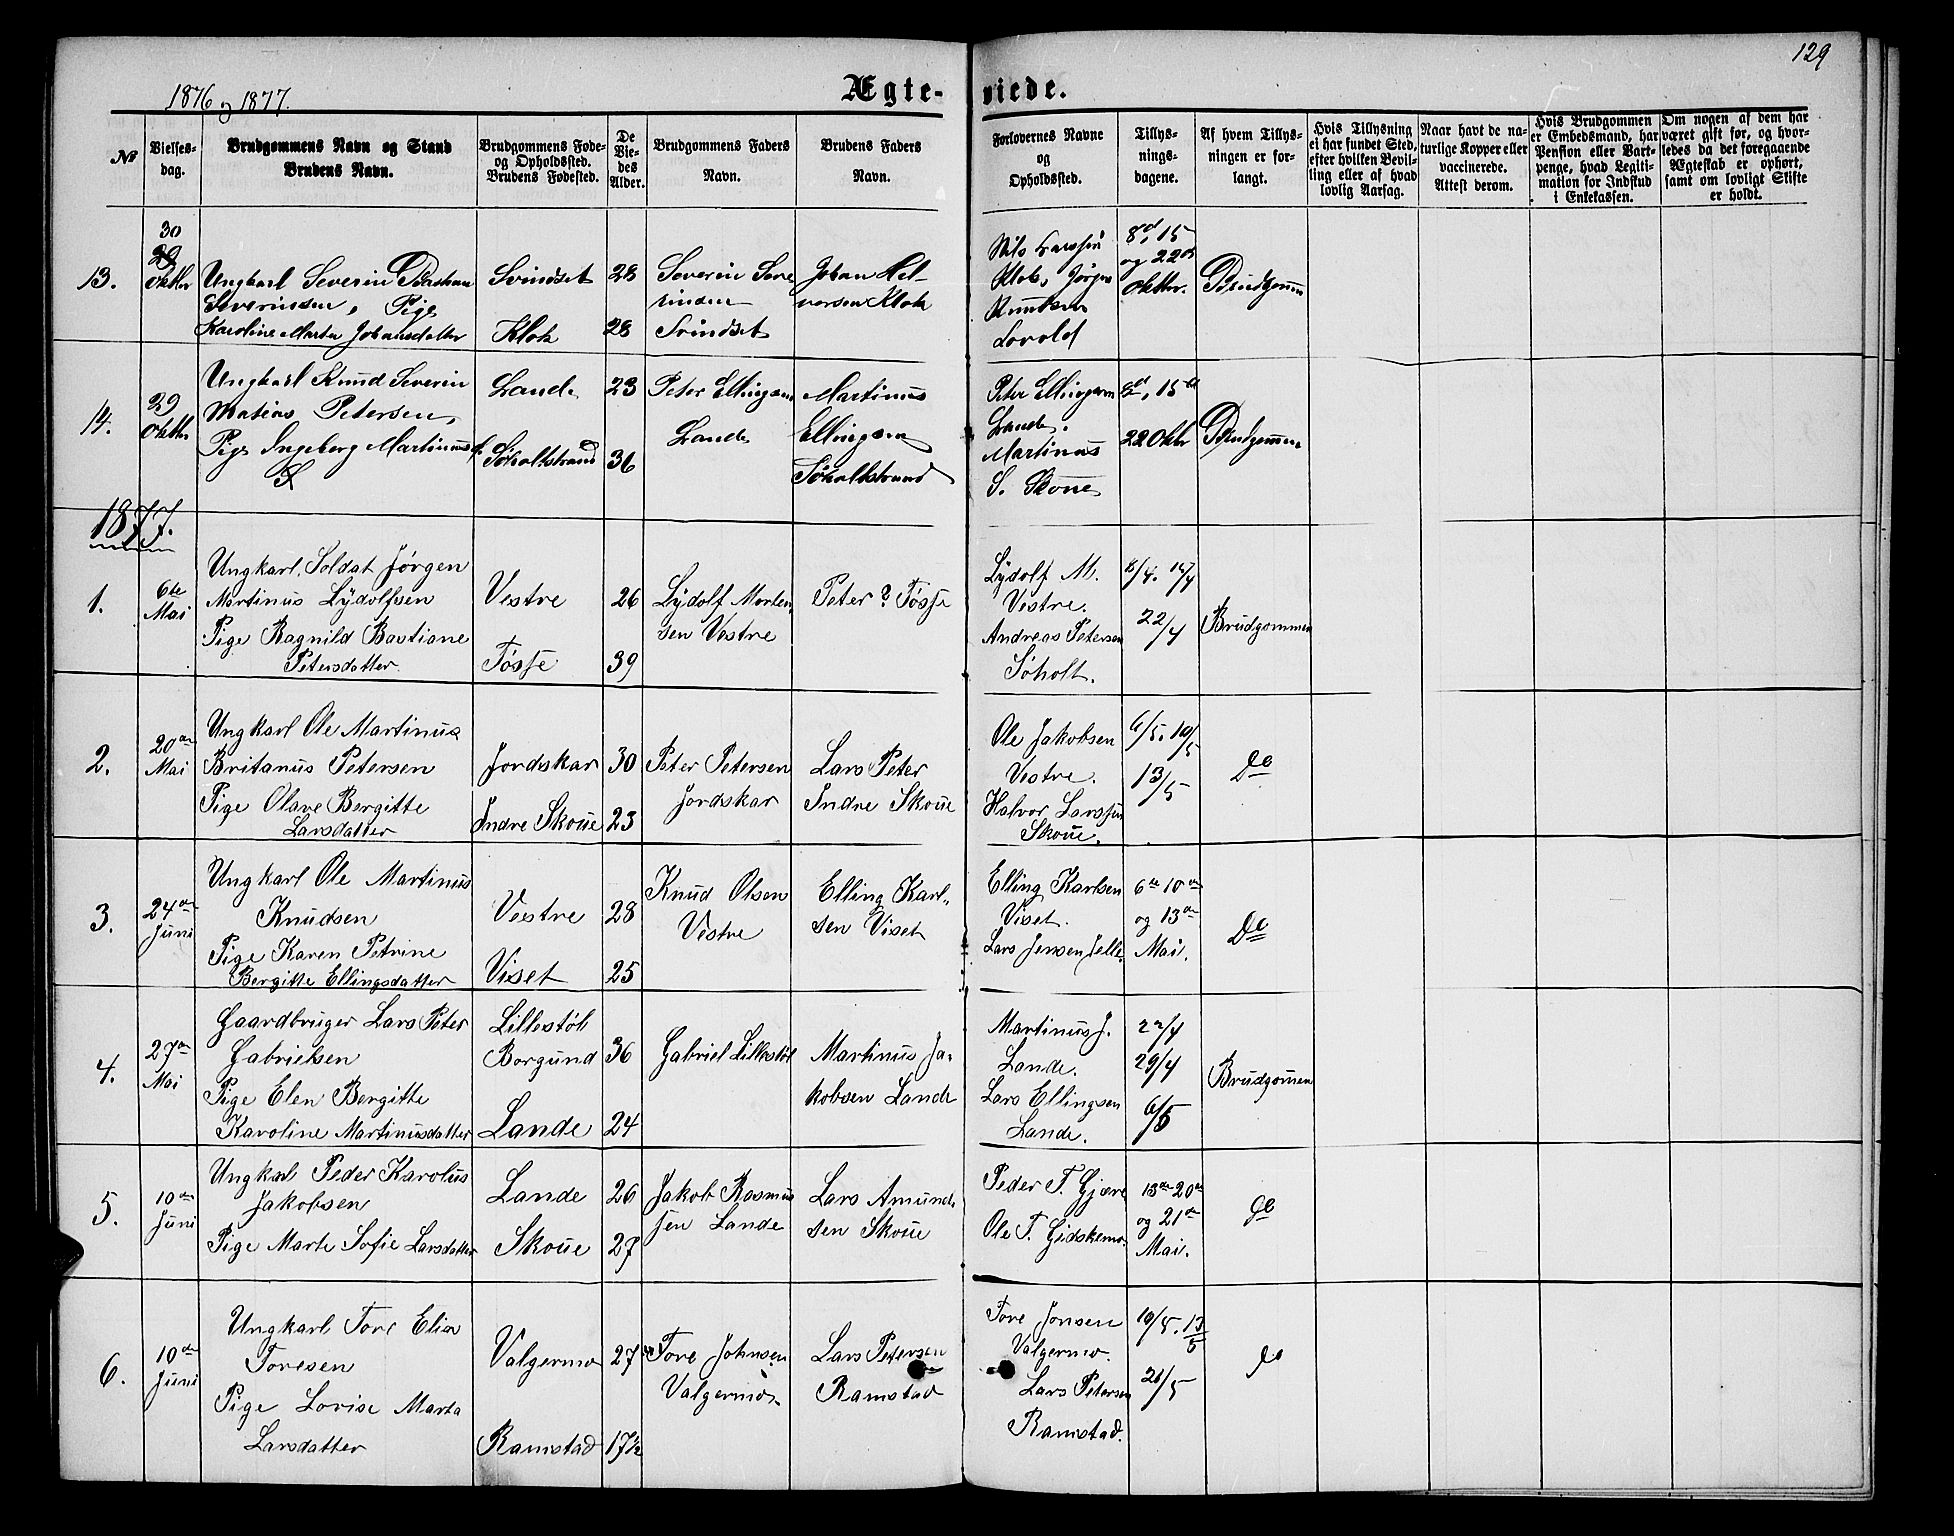 129
1876 og 1877.
Ægte-viede.
No
Vielses-dag.
Brudgommens Navn og Stand
Brudens Navn.
Brudgommens Føde- og Opholdssted.
Brudens Fødested.
De Vie-des Alder.
Brudgommens Faders Navn.
Brudens Faders Navn.
Forlovernes Navne og Opholdssted.
Tillys-nings-dagene.
Af hvem Tillys-ningen er for-langt.
Hvis Tillysning ei har fundet Sted, efter hvilken Bevil-ling eller af hvad lovlig Aarsag.
Naar havt de na-turlige Kopper eller vaccinerede. Attest derom.
Hvis Brudgommen er Embedsmand, har Pension eller Vart-penge, hvad Legiti-mation for Indskud i Enkekassen.
Om nogen af dem har været gift før, og hvor-ledes da det foregaaende Ægteskab er ophørt, samt om lovligt Skifte er holdt.
13.
30
29
Oktbr
Ungkarl Severin
Severinsen, Pige
Karoline Marta Johansdatter
Svindset
Klok
28
28
Severin Seve
rinsen
Svindset
Johan Hel-
versen Klok
Nils Larssen
Klok, Jørgen
Knudsen
Lovold
8de, 15
og 22de
Oktbr.
Brudgommen
14.
29
Oktbr
Ungkarl Knud Severin
Matias Petersen,
Pige Ingeberg Martinusd.
Lande
Søholtstrand
23
36
Peter Ellingsen
Lande
Martinus
Ellingsen
Søholtstrand
Peter Ellingsen
Lande.
Martinus
S. Skoue
8de, 15de
22 Oktbr
Brudgommen
1877.
1.
6te
Mai
Ungkarl, Soldat Jørgen
Martinus Lydolfsen
Pige Ragnild Bastiane
Petersdatter.
Vestre
Fosse
26
39
Lydolf Morten
sen Vestre
Peter ? Fosse
Lydolf M.
Vestre.
Andreas Petersen
Søholt.
8/4. 14/4
22/4
Brudgommen
2.
20de
Mai
Ungkarl Ole Martinus
Britanus Petersen
Pige Olave Bergitte
Larsdatter
Jordskar
Indre Skoue
30
23
Peter Petersen
Jordskar
Lars Peter
Indre Skoue
Ole Jakobsen
Vestre.
Halvor Larssen
Skoue.
6/5. 10/5
13/5
Do
3.
24de
Juni
Ungkarl Ole Martinus
Knudsen
Pige Karen Petrine
Bergitte Ellingsdatter
Vestre
Viset
28
25
Knud Olsen
Vestre
Elling Karl-
sen Viset
Elling Karlsen
Viset.
Lars Jensen Jelle
6te 10de
og 13de
Mai.
Do
4.
27de
Mai
Gaardbruger Lars Peter
Gabrielsen
Pige Elen Bergitte
Karoline Martinusdatter
Lillestøl
Borgund
Lande
36
24
Gabriel Lillestøl
Martinus Ja-
kobsen Lande
Martinus J.
Lande.
Lars Ellingsen
Lande.
22/4
29/4
6/5
Brudgommen
5.
10de
Juni
Ungkarl Peder Karolus
Jakobsen
Pige Marte Sofie Larsdatter
Lande
Skoue
26
27
Jakob Rasmus
sen Lande
Lars Amund
sen Skoue
Peder T. Gjære
Ole T. Gidskemo.
13de 20de
og 21de
Mai.
Do
6.
10de
Juni
Ungkarl Tore Elias
Toresen
Pige Lovise Marta
Larsdatter
Valgermo
Ramstad
27
17½
Tore Johnsen
Valgermo
Lars Petersen
Ramstad
Tore Jonsen
Valgermo.
Lars Petersen
Ramstad.
10/5. 13/5
21/5
Do